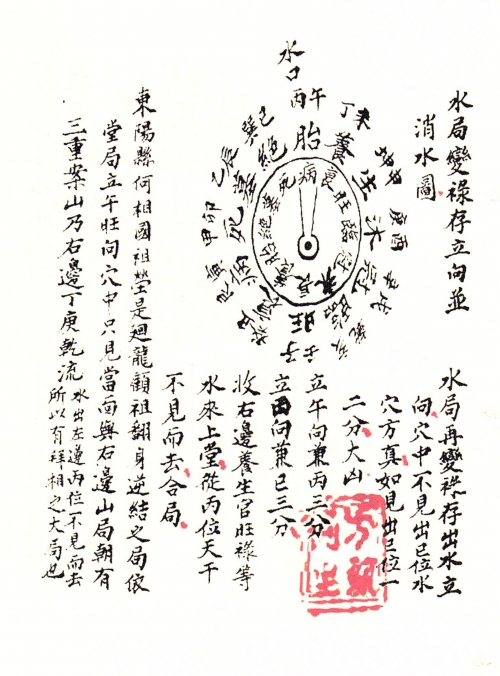 水局變祿存立向並
消水圖
水口
丙午
丁未
庚酉
辛戌
壬子
甲卯
乙辰
巽巳
胎
養
生
沐
冠
臨
旺
死
墓
絕
病
衰
旺
臨
冠
長
養
胎
絕
墓
死
水局再變祿存出水立
向穴中不見出巳位水
穴方真如見出巳位一
二分大凶
立午向兼丙三分
立向兼巳三分
收右邊養生官旺祿等
水來上堂從丙位天干
不見而去合局
東陽縣何相國祖塋是廻龍顧祖翻身逆結之局依
堂局立午旺向穴中只見當面與右邊山局朝有
三重案山乃右邊丁庚乾流
水出左邊丙位不見而去
所以有拜相之大局也